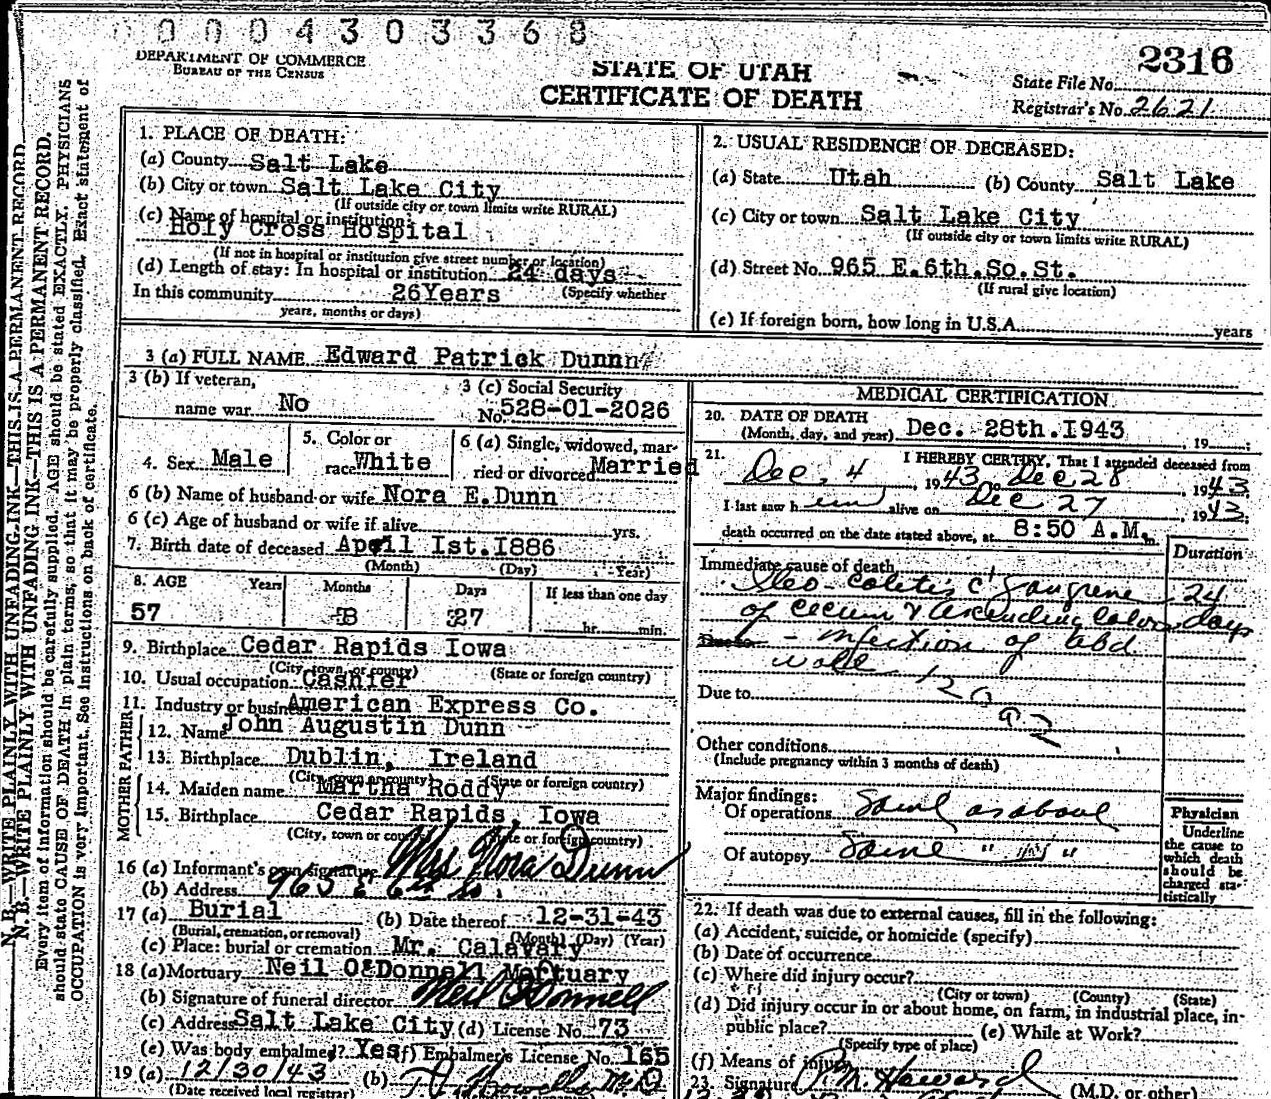 0 0 0 4 3 0 3 3 6 8
DEPARTMENT OF COMMERCE
BUREAU OF THE CENSUS
STATE OF UTAH
CERTIFICATE OF DEATH
2316
State File No.
Registrar's No. 2621
N. B.—WRITE PLAINLY WITH UNFADING INK—THIS IS A PERMANENT RECORD
N. B.—WRITE PLAINLY WITH UNFADING INK—THIS IS A PERMANENT RECORD.
Every item of information should be carefully supplied. AGE should be stated EXACTLY. PHYSICIANS
should state CAUSE OF DEATH in plain terms, so that it may be properly classified. Exact statement of
OCCUPATION is very important. See instructions on back of certificate.
1. PLACE OF DEATH:
(a) County Salt Lake
(b) City or town Salt Lake City
(If outside city or town limits write RURAL)
(c) Name of hospital or institution:
Holy Cross Hospital
(If not in hospital or institution give street number or location)
(d) Length of stay: In hospital or institution 24 days
In this community 26Years (Specify whether
years, months or days)
2. USUAL RESIDENCE OF DECEASED:
(a) State Utah (b) County Salt Lake
(c) City or town Salt Lake City
(If outside city or town limits write RURAL)
(d) Street No. 965 E.6th.So.St.
(If rural give location)
(e) If foreign born, how long in U.S.A. years
3 (a) FULL NAME Edward Patrick Dunnn
3 (b) If veteran,
name war No
3 (c) Social Security
No. 528-01-2026
4. Sex Male
5. Color or
race White
6 (a) Single, widowed, mar-
ried or divorced Married
6 (b) Name of husband or wife Nora E.Dunn
6 (c) Age of husband or wife if alive yrs.
7. Birth date of deceased April Ist.I886
(Month) (Day) (Year)
8. AGE Years Months Days If less than one day
57 8 27 hr. min.
9. Birthplace Cedar Rapids Iowa
(City, town, or county) (State or foreign country)
10. Usual occupation Cashier
11. Industry or business American Express Co.
FATHER
12. Name John Augustin Dunn
13. Birthplace Dublin, Ireland
(City, town or county) (State or foreign country)
MOTHER
14. Maiden name Martha Roddy
15. Birthplace Cedar Rapids, Iowa
(City, town or county) (State or foreign country)
16 (a) Informant's own signature Mrs Nora Dunn
(b) Address 965 E 6th So.
17 (a) Burial (b) Date thereof 12-31-43
(Burial, cremation, or removal) (Month) (Day) (Year)
(c) Place: burial or cremation Mr. Calavary
18 (a) Mortuary Neil O'Donnell Mortuary
(b) Signature of funeral director Neil O'Donnell
(c) Address Salt Lake City (d) License No. 73
(e) Was body embalmed? Yes (f) Embalmer's License No. 165
19 (a) 12/30/43 (b)
(Date received local registrar)
MEDICAL CERTIFICATION
20. DATE OF DEATH
(Month, day, and year) Dec. 28th.I943, 19
21. I HEREBY CERTIFY, That I attended deceased from
Dec. 4, 1943 Dec 28, 1943
I last saw him alive on Dec 27, 1943
death occurred on the date stated above, at 8:50 A.M. m.
Duration
Immediate cause of death
Ileo-colitis c gangrene 24
of cecum & ascending colon days
Due to - infection of abd.
wall
Due to
Other conditions
(Include pregnancy within 3 months of death)
Major findings:
Of operations Same as above
Of autopsy Same " " "
Physician
Underline
the cause to
which death
should be
charged sta-
tistically
22. If death was due to external causes, fill in the following:
(a) Accident, suicide, or homicide (specify)
(b) Date of occurrence
(c) Where did injury occur?
(City or town) (County) (State)
(d) Did injury occur in or about home, on farm, in industrial place, in-
public place? (e) While at Work?
(Specify type of place)
(f) Means of injury
23. Signature Howard (M.D. or other)